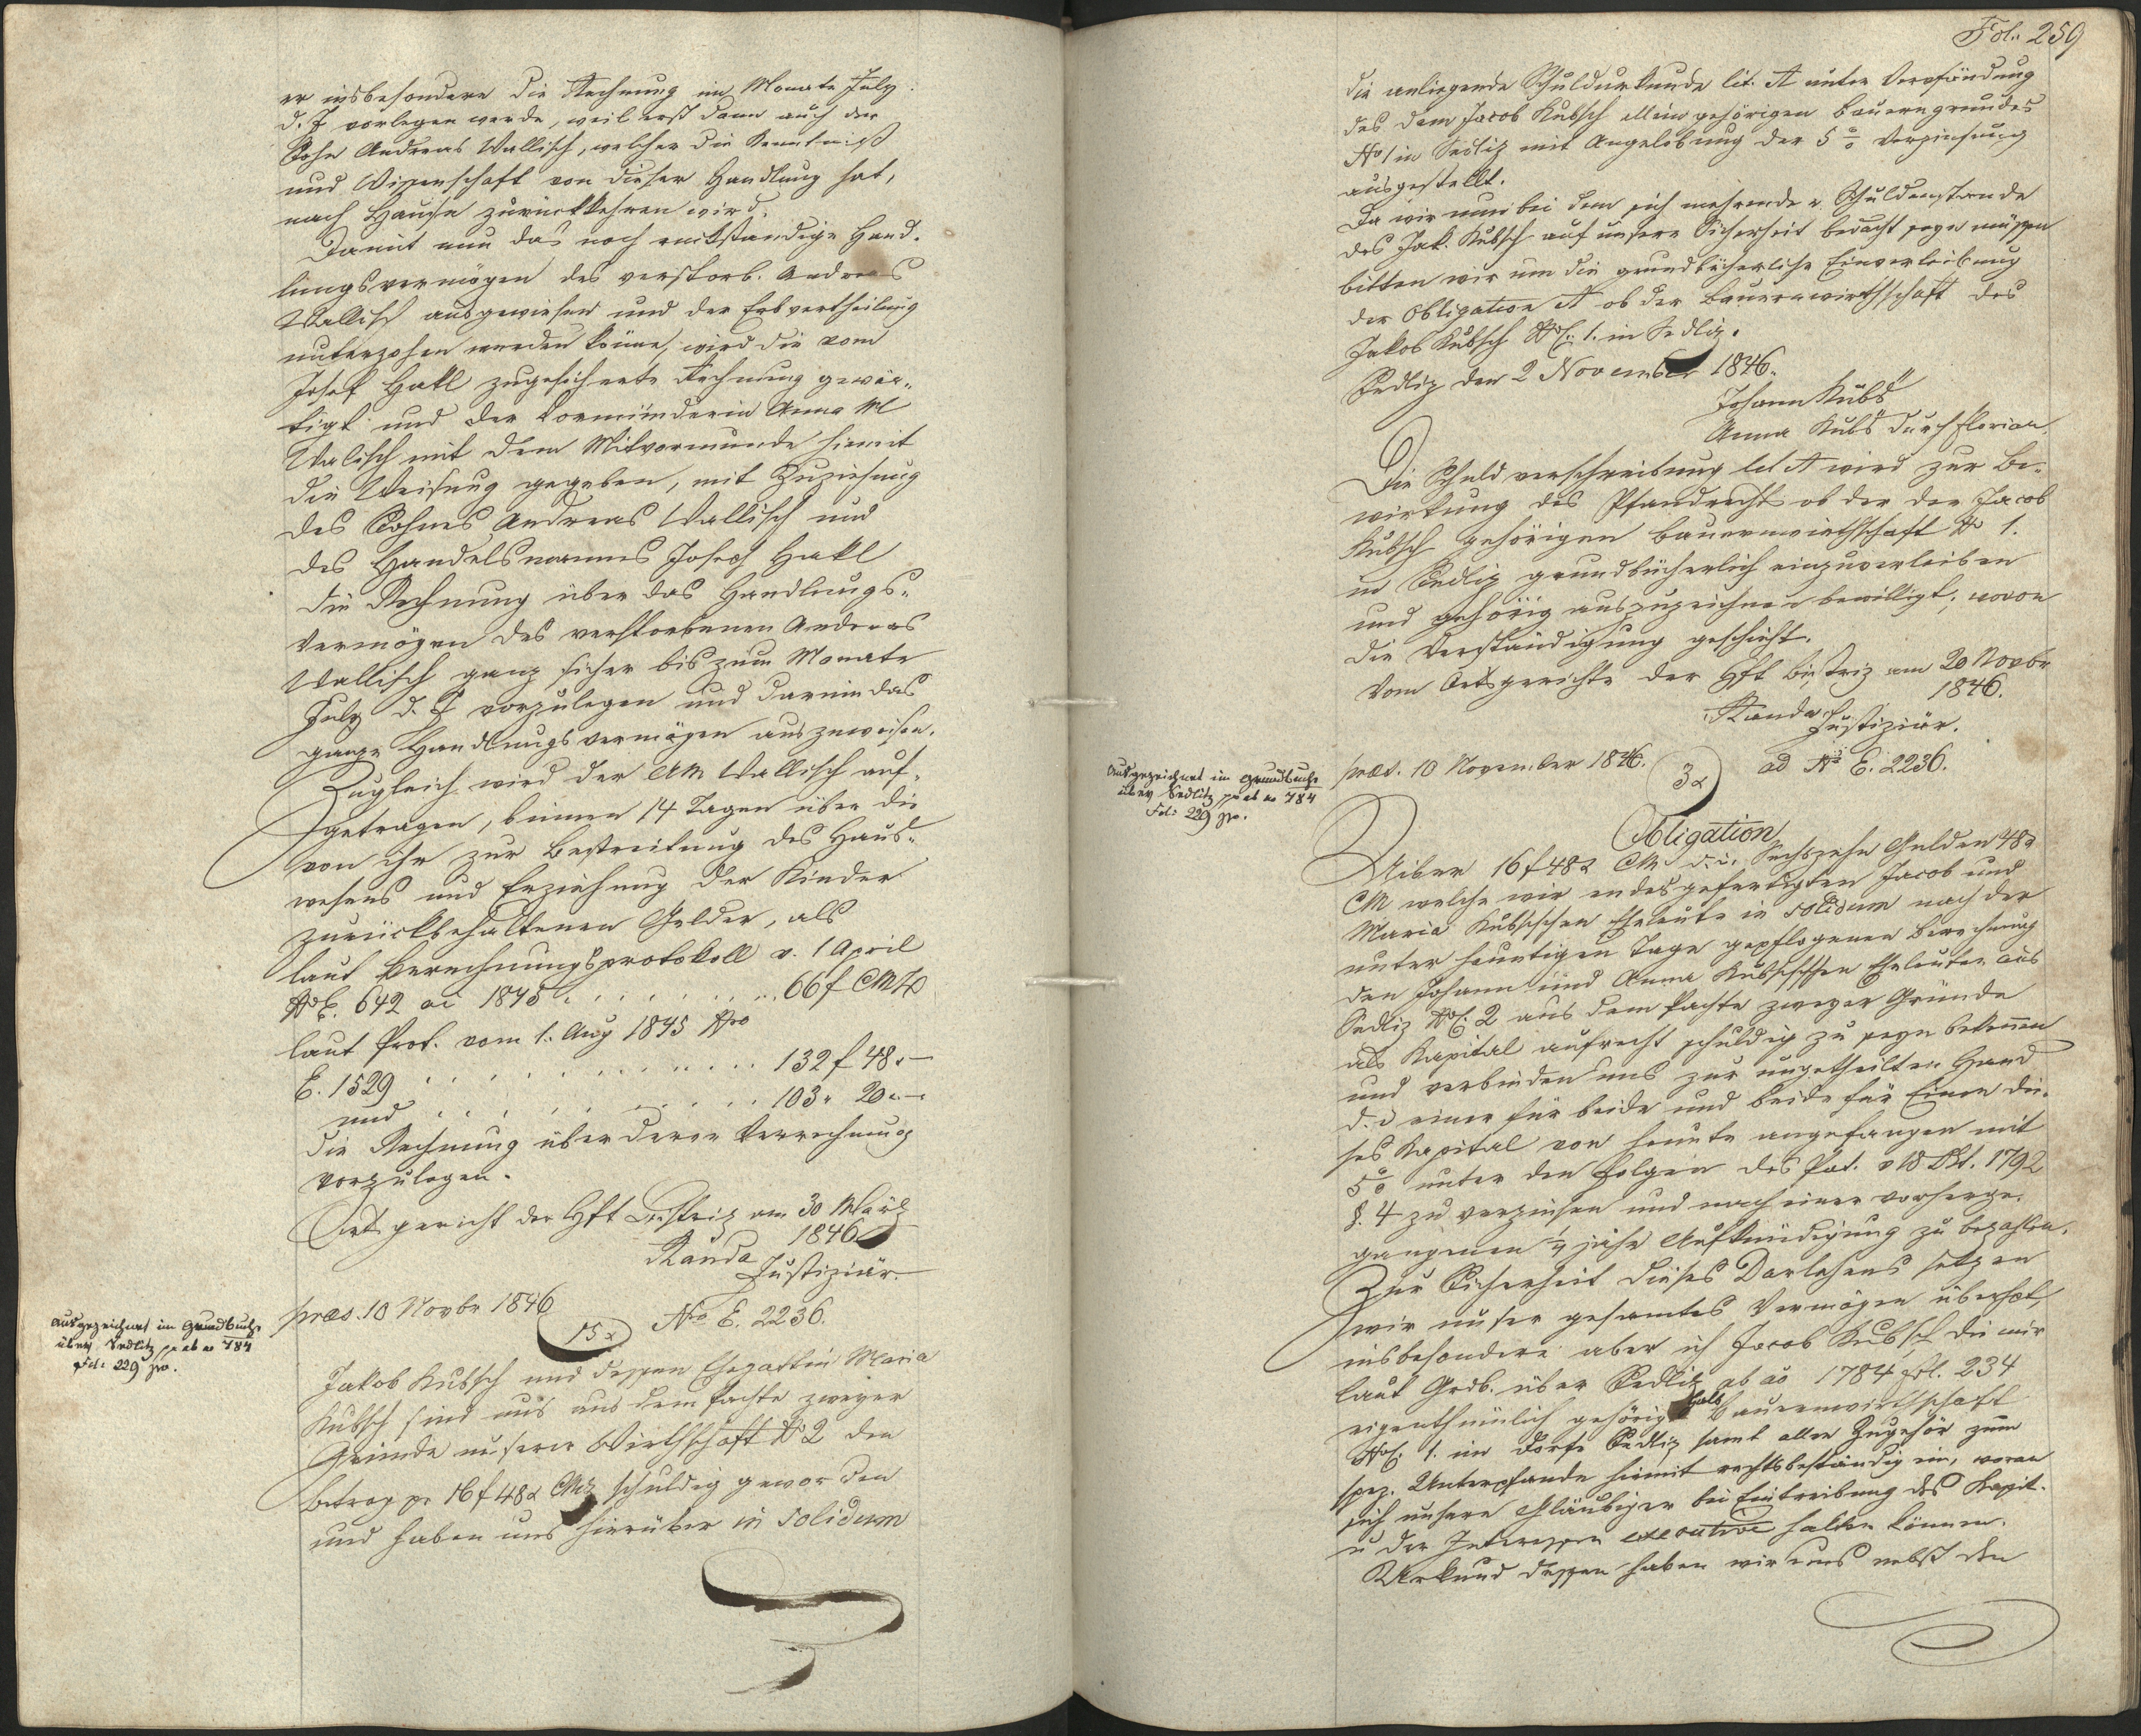 er insbesondere die Rechnung im Monate July
d. J vorlegen werde, weil erst dann auch der
Sohn Andreas Wallisch, welcher die Kenntniß
und Wissenschaft von dieser Handlung hat,
nach Hause zurückkehren wird.
Damit nun das noch rückständige Hand-
lungsvermögen des verstorb. Andreas
Wallisch ausgewiesen und der Erbvertheilung
unterzohen werden könne, wird die vom
Josef Hakl zugesicherte Rechnung gewär-
tigt und der Vormünderin Anna M
Walisch mit dem Mitvormunde hiemit
die Weisung gegeben, mit Zuziehung
des Sohnes Andreas Wallisch und
des Handelsmannes Joseph Hakl
die Rechnung über das Handlungs-
vermögen des verstorbenen Andreas
Wallisch ganz sicher bis zum Monate
July d. J vorzulegen und darin das
ganze Handlungsvermögen auszuweisen.
Zugleich wird der AM Wallisch auf-
getragen, binnen 14 Tagen über die
von ihr zur Bestreitung des Haus-
wesens und Erziehung der Kinder
zurückbehaltenen Gelder, als
laut Berechnungsprotokoll v. 1 April
No E. 642 ai 1845 . . . . . . . . 66 f CMz
laut Prot. vom 1. Aug 1845 Nro
E. 1529 . . . . . . . . . . 132 f 48 x —
und . . . . . . . . . 103 „ 20 „ —
die Rechnung über deren Verrechnung
vorzulegen.
Ortsgericht der Hft Bistriz am 30 März
1846
Randa
Justiziär.
præs. 10 Novbr 1846
15 x
No E. 2236.
Ausgezeichnet im Grundbuche
über Sedlitz ab ao 784
Fol: 229 
Jakob Kubsch und dessen Ehegattin Maria
Kubsch sind uns aus dem Pachte zweyer
Gründe unserer Wirthschaft No 2 den
Betrag pr 16 f 48 x CMz schuldig geworden
und haben uns hierüber in solidum
Fol. 259
die anliegende Schuldurkunde lit. A unter Verpfändung
des dem Jacob Kubsch allein gehörigen Bauerngrundes
No 1 in Sedliz mit Angelobung der 5 % Verzinsung
ausgestellt.
Da wir nun bei dem sich mehrenden Schuldenstande
des Jak. Kubsch auf unsere Sicherheit bedacht seyn müssen
bitten wir um die grundbücherliche Einverleibung
der Obligation A ob der Bauernwirthschaft des
Jakob Kubsch NC. 1. in Sedliz.
Sedliz den 2 November 1846.
Johann Kubs
Anna Kubs durch Florian
Die Schuldverschreibung lit A wird zur Be-
wirkung des Pfandrechts ob der dem Jacob
Kubsch gehörigen Bauernwirthschaft No 1.
in Sedliz grundbücherlich einzuverleiben
und gehörig auszuzeichnen bewilligt, wovon
die Verständigung geschieht.
Vom Ortsgerichte der Hft Bistriz am 20 Novbr
1846.
Randa
Justiziär.
præs. 10 November 1846.
3 x
ad No E. 2236.
Ausgezeichnet im Grundbuche
über Sedlitz ab ao 784
Fol: 229 
Obligation
Uiber 16 f 48 x CM d. i. Sechszehn Gulden 48 x
CM welche wir endesgefertigten Jacob und
Maria Kubschschen Eheleute in solidum nach der
unter heuntigen Tage gepflogenen Berechnung
den Johann und Anna Kubschschen Eheleuten aus
Sedliz NC. 2 aus dem Pachte zweyer Gründe
als Kapital aufrecht schuldig zu seyn bekennen
und verbinden uns zur ungetheilten Hand
d. i einer für beide und beide für Einen die-
ses Kapital von heunte angefangen mit
5 % unter den Folgen des Pat. v 18 Okt. 1792
§. 4 zu verzinsen und nach einer vorherge-
gangenen ¼ jähr Aufkündigung zu bezahlen.
Zur Sicherheit dieses Darlehens setzen
wir unser gesamtes Vermögen überhaupt,
insbesondere aber ich Jacob Kubsch die mir
laut Grdb. über Sedliz ab ao 1784 fol. 234
eigenthümlich gehörige halbe Bauernwirthschaft
NC. 1. im Dorfe Sedliz samt allen Zugehör zum
spez. Unterpfande hiemit rechtsbeständig ein, woran
sich unsere Gläubiger bei Eintreibung des Kapit.
u der Interessen executive halten können.
Urkund dessen haben wir uns nebst den